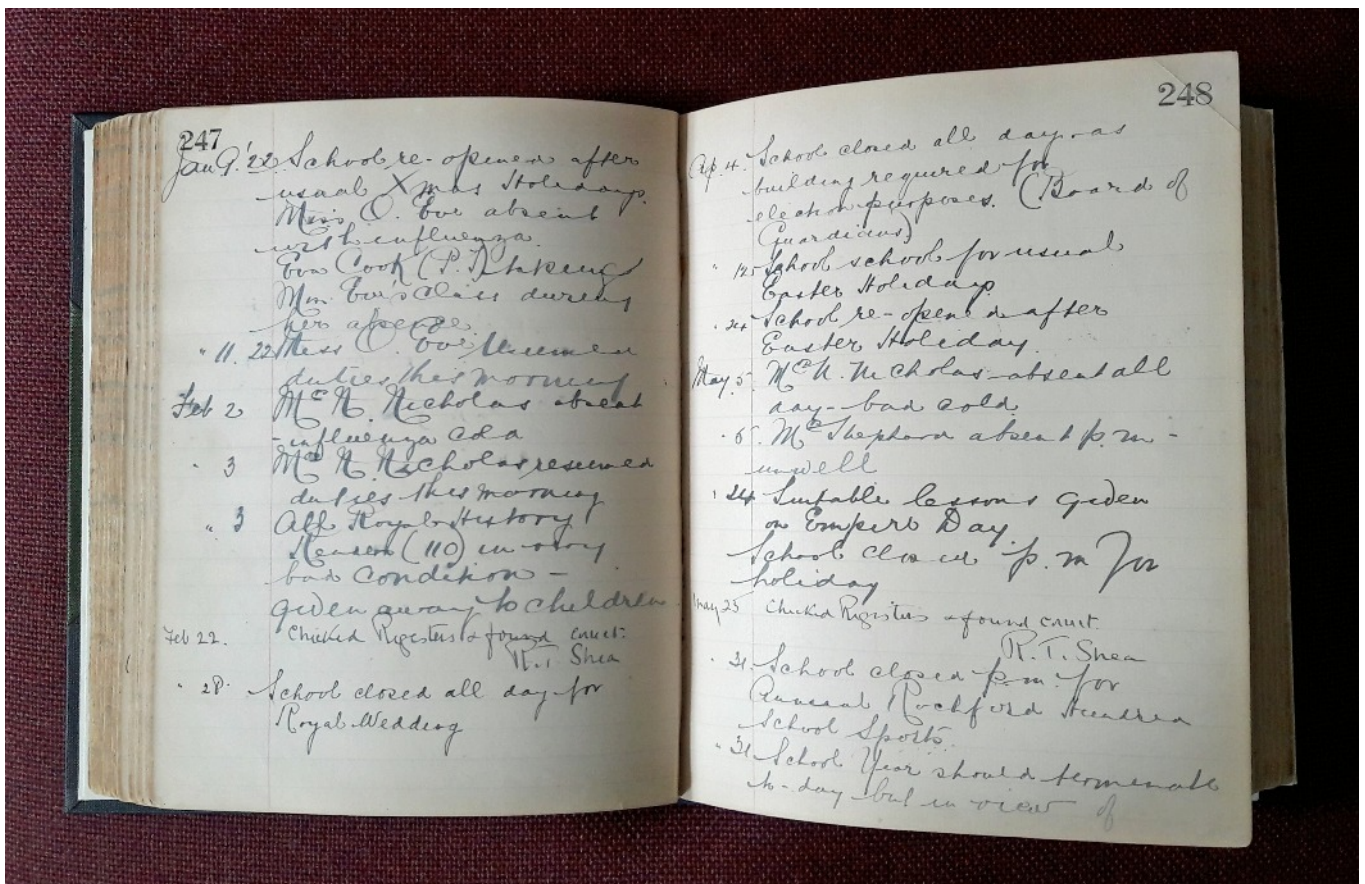 247
Jan 9. '22. School re-opened after
usual Xmas Holidays.
Miss O. Eve absent
with influenza.
Eva Cook (P.T.) taking
Miss Eve's class during
her absence.
" 11. 22 Miss O. Eve resumed
duties this morning
Feb 2 Mr N. Nicholas absent
- influenza cold
" 3 Mr N. Nicholas resumed
duties this morning
" 3 All Royal History
Readers (110) in very
bad condition -
given away to children
Feb 22. Checked Registers & found correct.
R.T. Shea
" 28. School closed all day for
Royal Wedding
248
Ap. 4. School closed all day - as
building required for
election purposes. (Board of
Guardians)
" 12 School school for usual
Easter Holidays
" 24 School re-opened after
Easter Holiday.
May 5. Mr N. Nicholas - absent all
day - bad cold.
" 5. Mr Shepherd absent p.m -
unwell
" 24 Suitable lessons given
on Empire Day.
School closed p.m for
holiday
May 25 Checked Registers & found correct.
R.T. Shea
" 31. School closed p.m. for
Annual Rochford Hundred
School Sports.
" 31. School Year should terminate
to-day but in view of